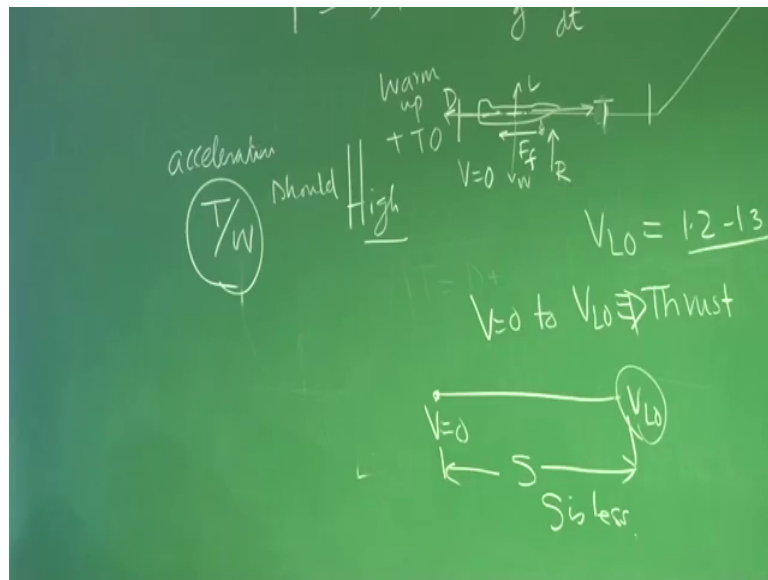 g dt
Warm
up
+ TO
D
L
T
V=0
F_f
W
R
acceleration
T/W
should High
V_LO = 1.2-1.3
V=0 to V_LO ⇒ Thrust
V=0
V_LO
S
S is less.